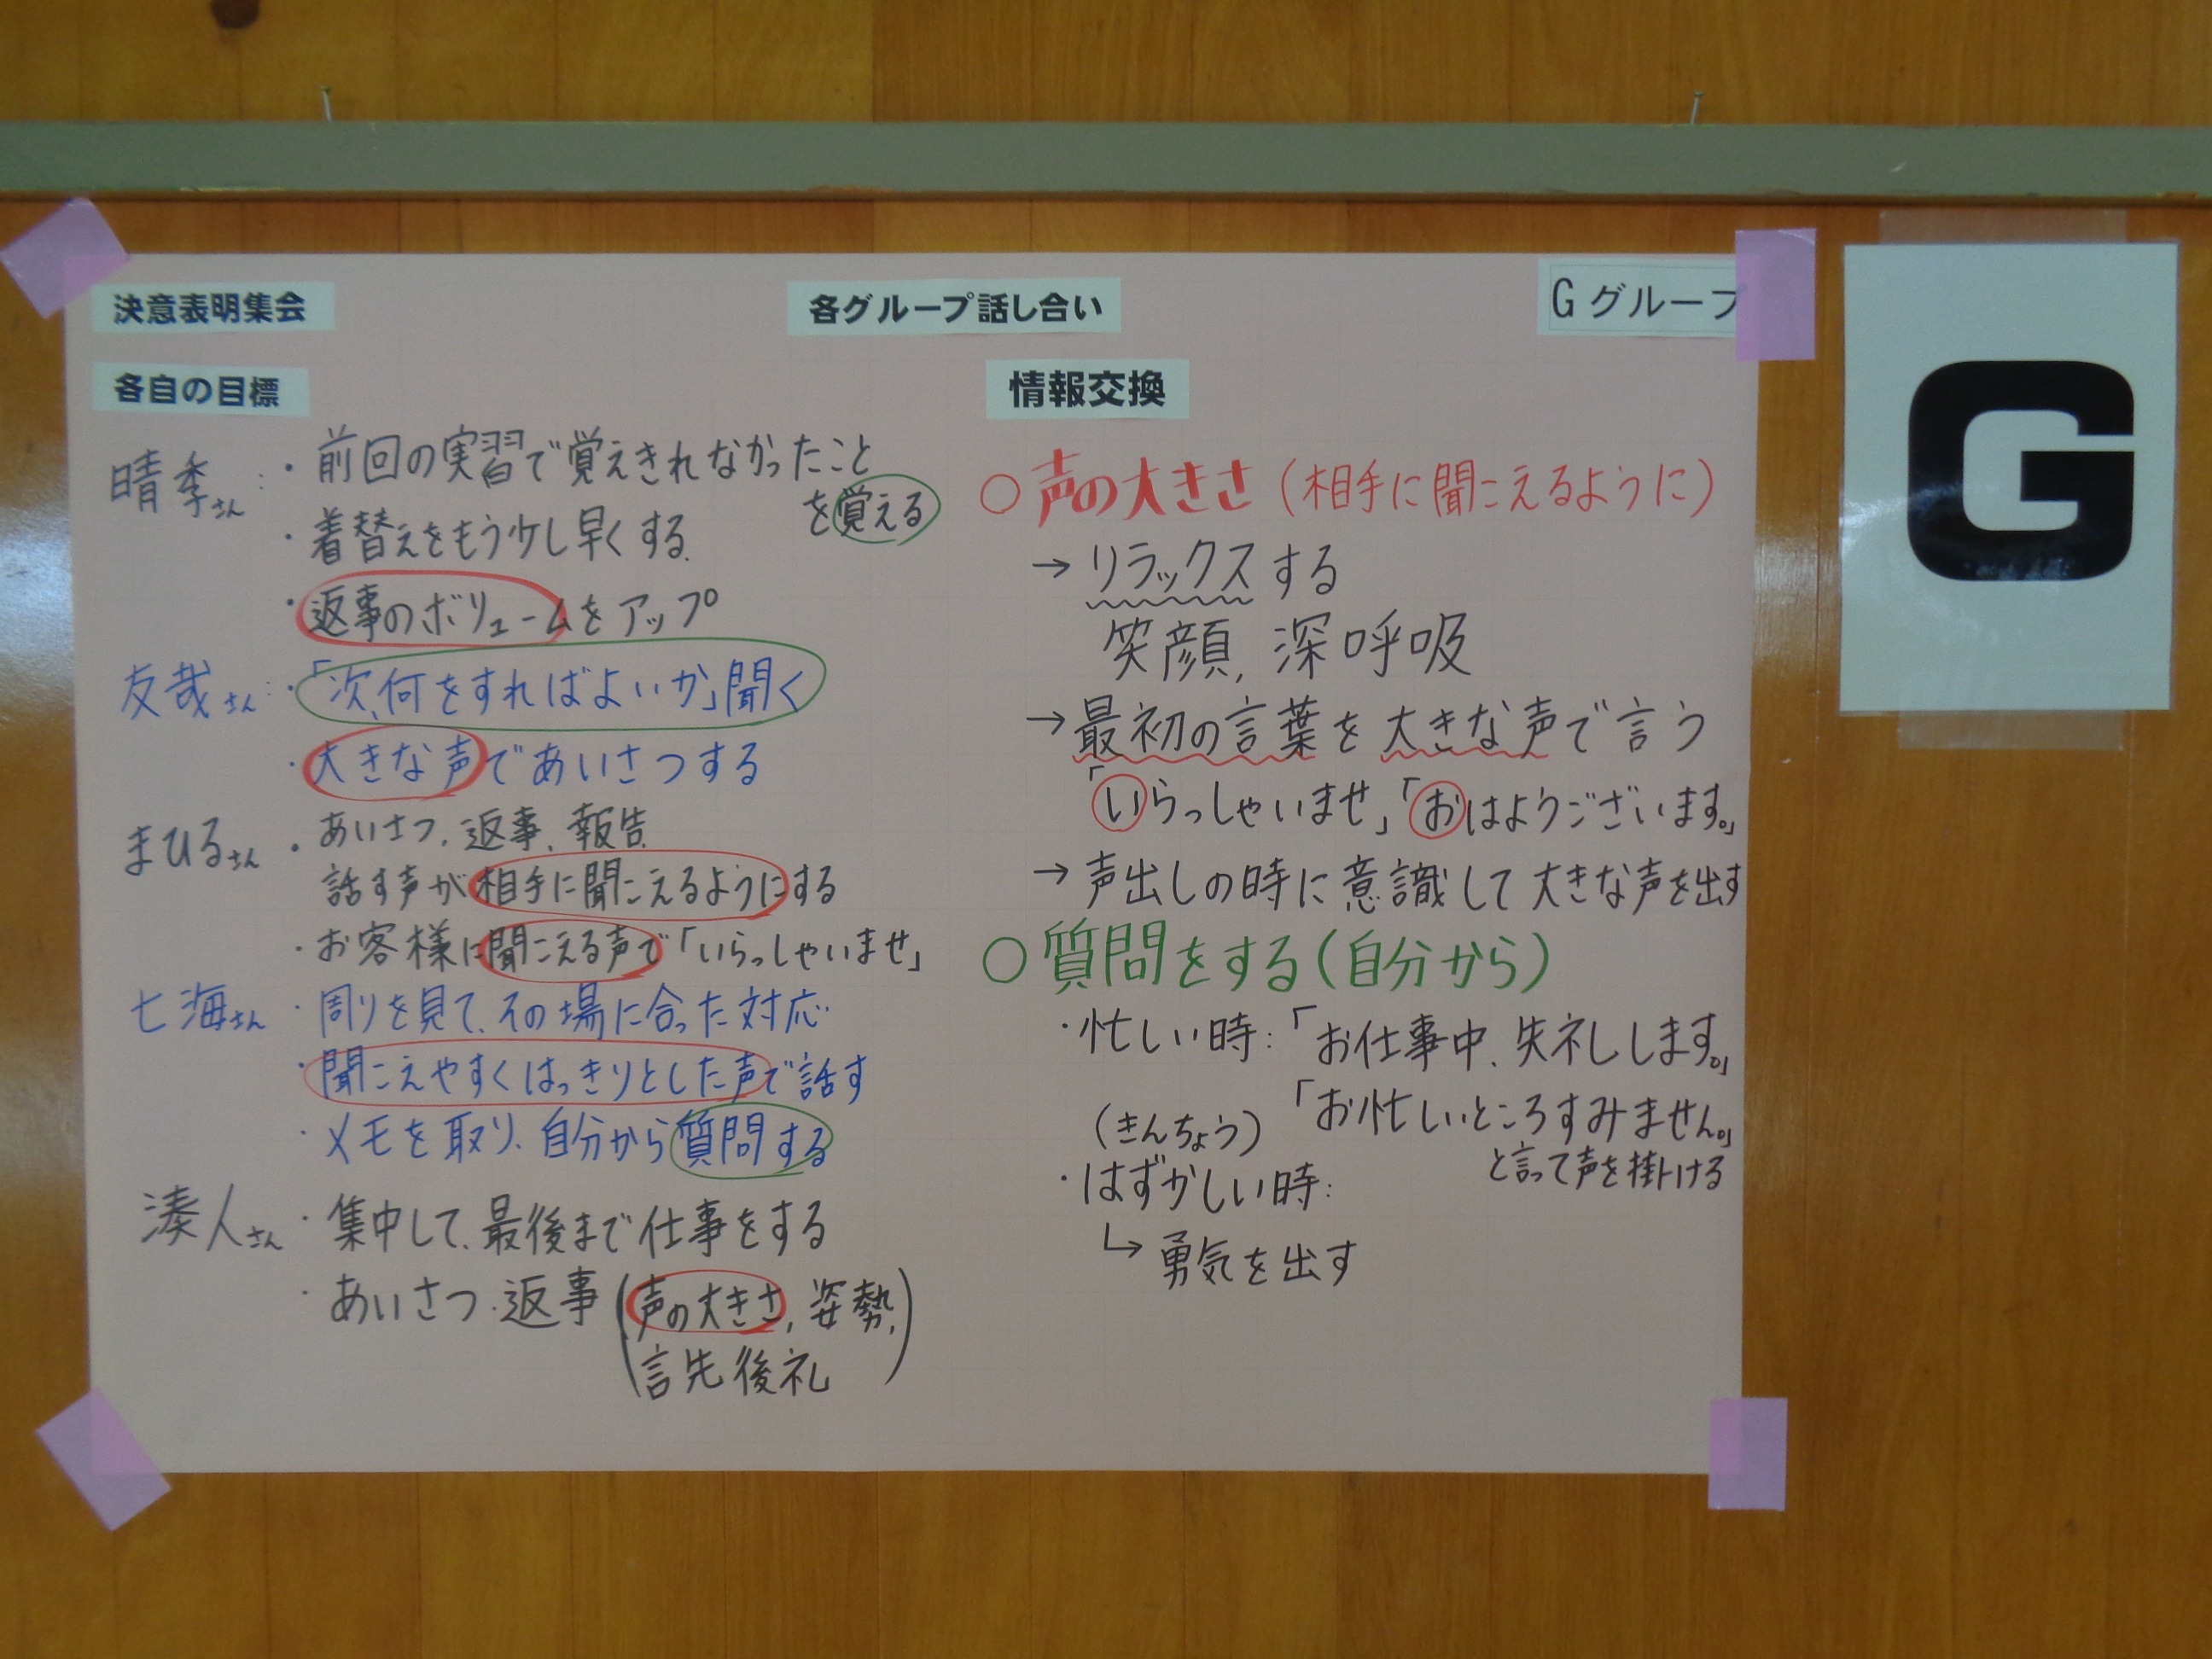 決意表明集会
各グループ話し合い
Gグループ
G
各自の目標
晴季さん:・前回の実習で覚えきれなかったこと
を覚える
・着替えをもう少し早くする
・返事のボリュームをアップ
友哉さん:・「次、何をすればよいか」聞く
・大きな声であいさつする
まひるさん・あいさつ、返事、報告
話す声が相手に聞こえるようにする
・お客様に聞こえる声で「いらっしゃいませ」
七海さん・周りを見て、その場に合った対応
・聞こえやすくはっきりとした声で話す
・メモを取り、自分から質問する
湊人さん・集中して、最後まで仕事をする
・あいさつ・返事(声の大きさ、姿勢、
言先後礼)
情報交換
○声の大きさ(相手に聞こえるように)
→リラックスする
笑顔、深呼吸
→最初の言葉を大きな声で言う
「いらっしゃいませ」「おはようございます。」
→声出しの時に意識して大きな声を出す
○質問をする(自分から)
・忙しい時:「お仕事中、失礼します。」
「お忙しいところすみません。」
と言って声を掛ける
(きんちょう)
・はずかしい時:
↳勇気を出す